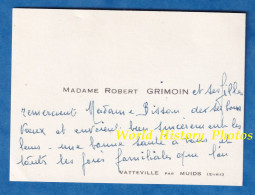 MADAME ROBERT GRIMOIN et ses filles
remercient Madame Bisson de ses bons
vœux et envoient bien sincèrement les
leurs - une bonne santé à vous et
toutes les joies familiales que l'on
VATTEVILLE PAR MUIDS (EURE)
World History Photos